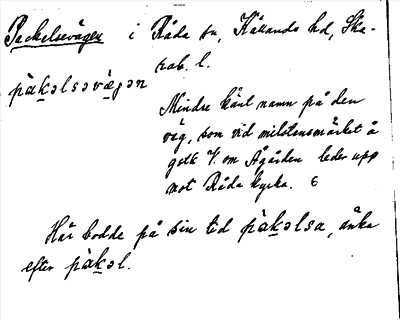 Packelsevägen i Råda sn, Kållands hd, Ska-
rab. l.
pàkəlsəvä̀gən
Mindre känt namn på den
väg, som vid milstensmärket å
gstk V. om Ågården leder upp
mot Råda kyrka. 6
Här bodde på sin tid pàkəlsa, änka
efter pàkəl.